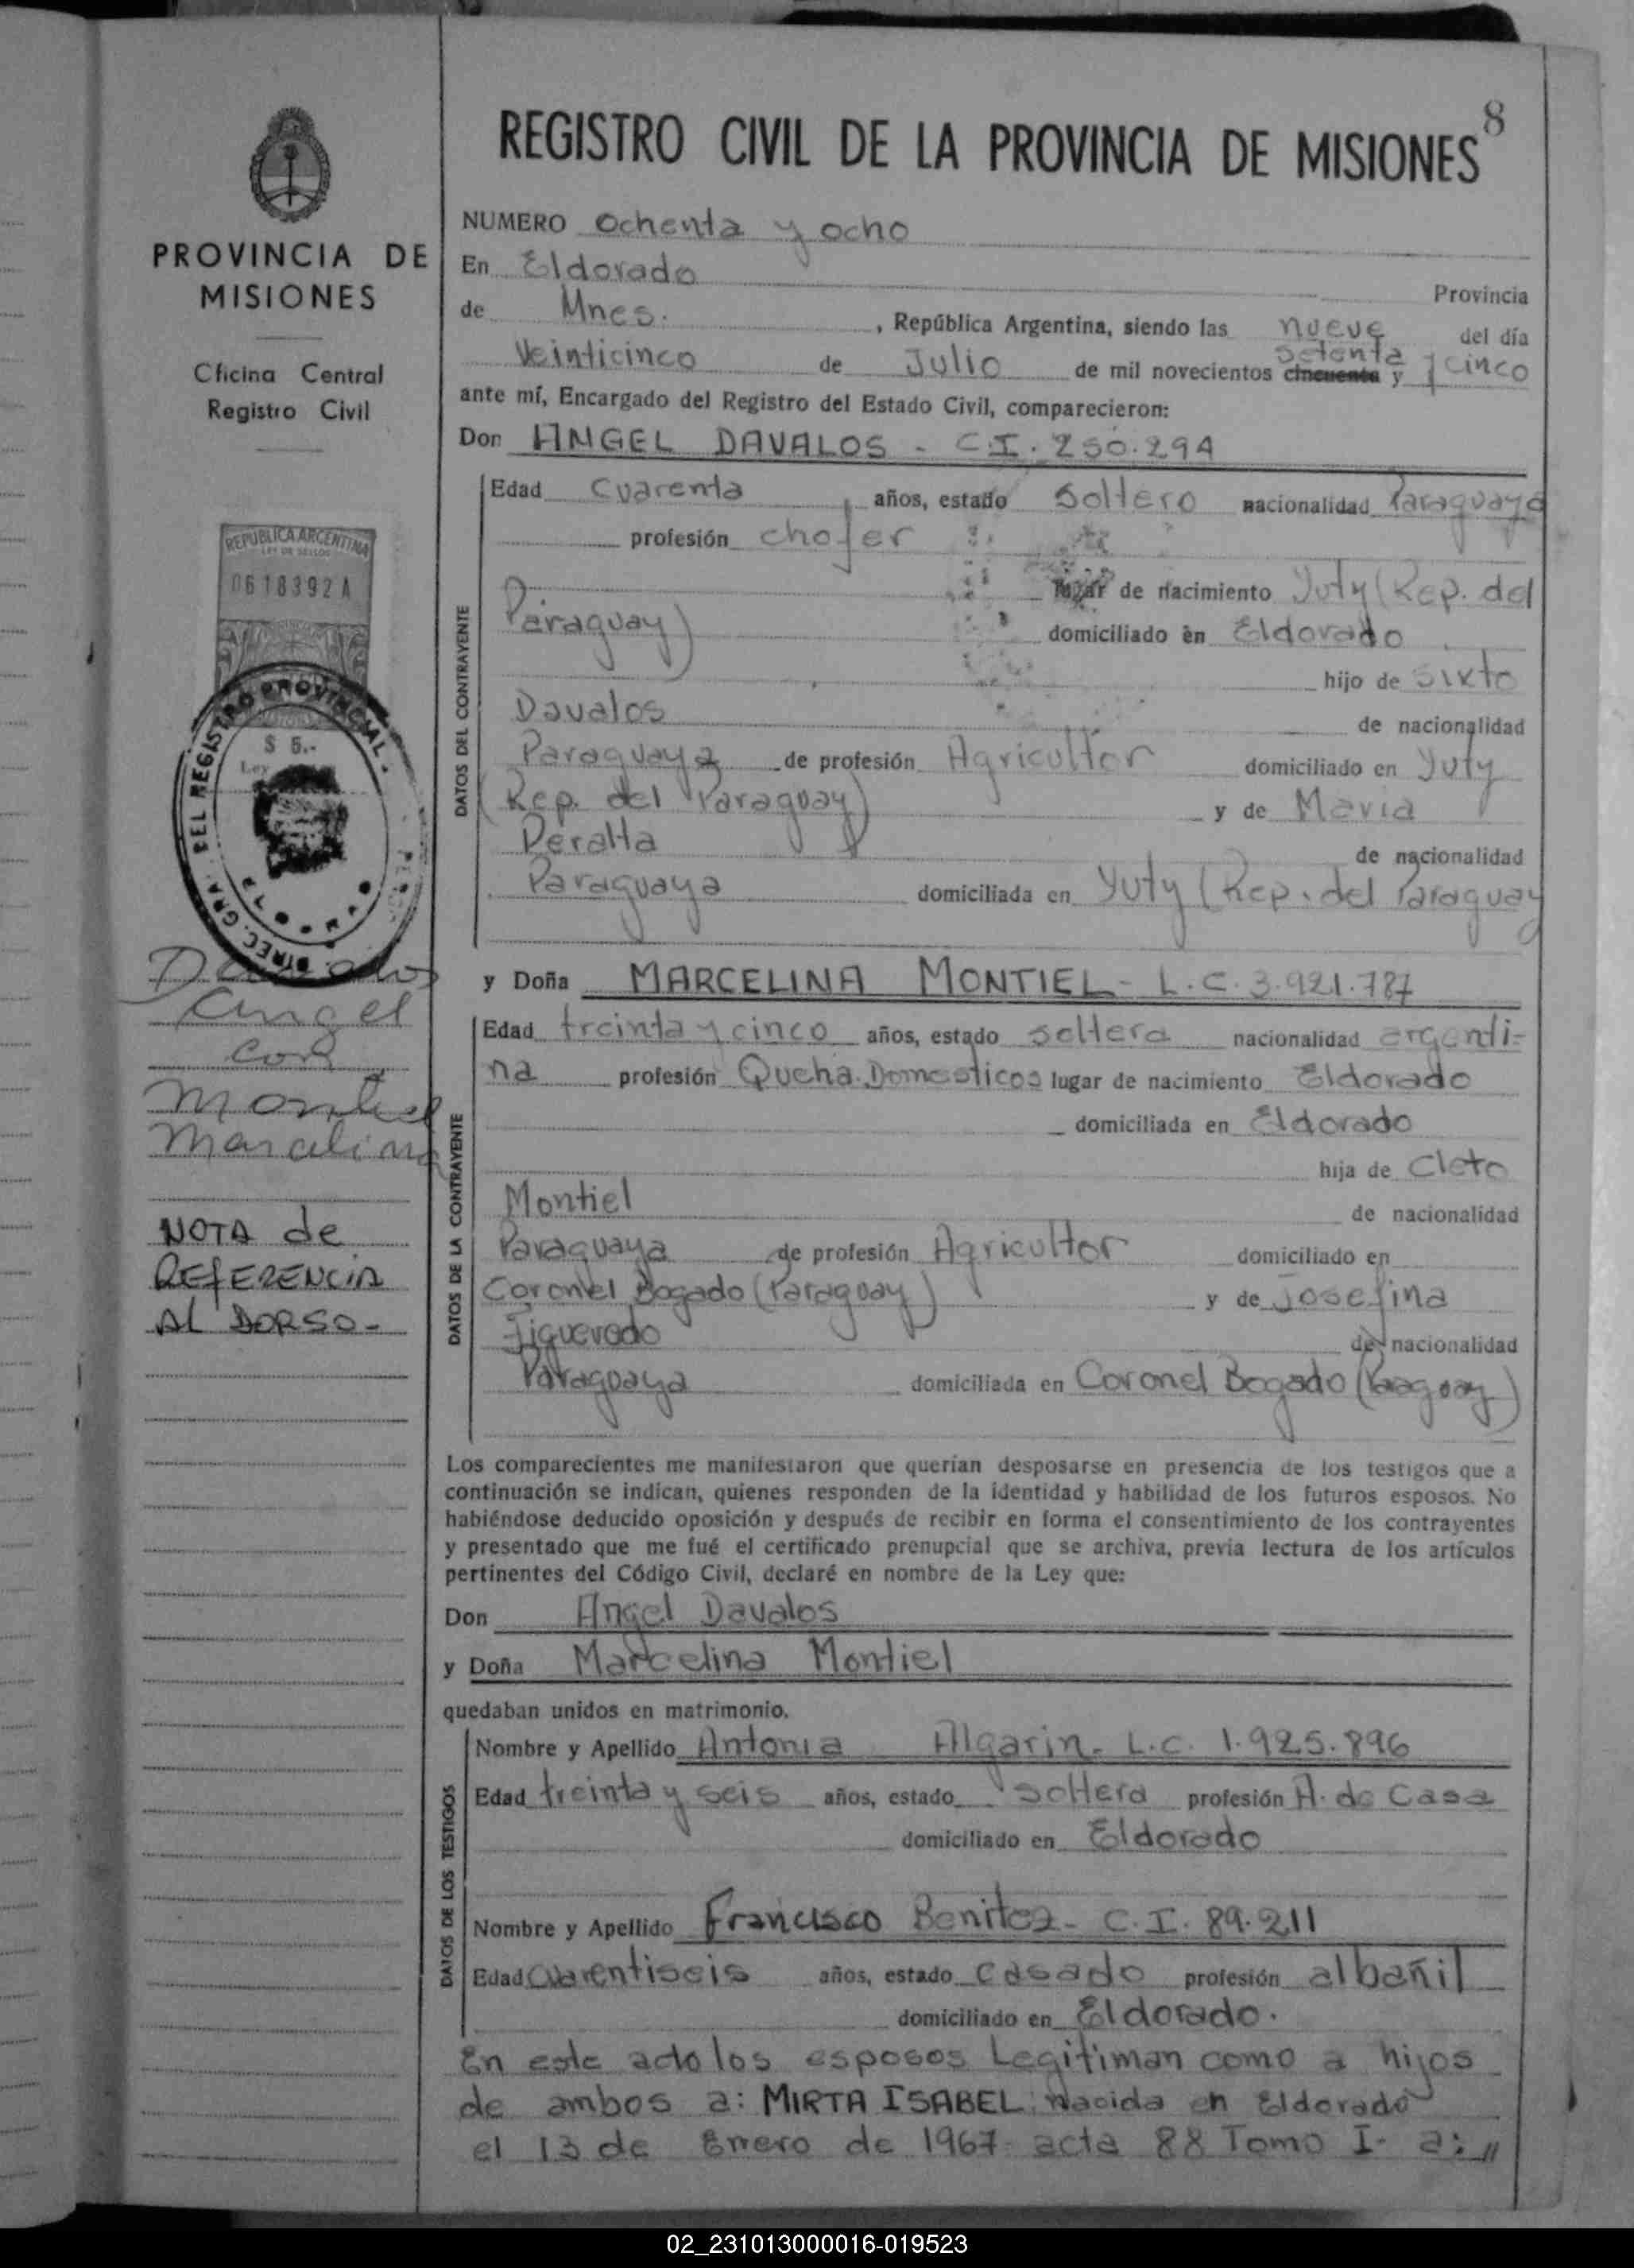 8
REGISTRO CIVIL DE LA PROVINCIA DE MISIONES
PROVINCIA DE
MISIONES
Oficina Central
Registro Civil
REPUBLICA ARGENTINA
LEY DE SELLOS
0618392 A
$ 5.-
Ley
DIREC. GRAL. DEL REGISTRO PROVINCIAL
Davalos
Angel
con
Montiel
Marcelina
NOTA de
REFERENCIA
AL DORSO-
NUMERO Ochenta y ocho
En Eldorado
Provincia
de Mnes. , República Argentina, siendo las nueve del día
Veinticinco de Julio de mil novecientos cincuenta setenta y cinco
ante mí, Encargado del Registro del Estado Civil, comparecieron:
Don ANGEL DAVALOS - C.I. 250.294
DATOS DEL CONTRAYENTE
Edad Cuarenta años, estado Soltero nacionalidad Paraguaya
profesión chofer
lugar de nacimiento Yuty (Rep. del
Paraguay) domiciliado en Eldorado
hijo de Sixto
Davalos de nacionalidad
Paraguaya de profesión Agricultor domiciliado en Yuty
(Rep. del Paraguay) y de Maria
Peralta de nacionalidad
Paraguaya domiciliada en Yuty (Rep. del Paraguay
y Doña MARCELINA MONTIEL - L.C. 3.921.787
DATOS DE LA CONTRAYENTE
Edad treinta y cinco años, estado soltera nacionalidad argenti-
na profesión Queha. Domesticos lugar de nacimiento Eldorado
domiciliada en Eldorado
hija de Cleto
Montiel de nacionalidad
Paraguaya de profesión Agricultor domiciliado en
Coronel Bogado (Paraguay) y de Josefina
Figueredo de nacionalidad
Paraguaya domiciliada en Coronel Bogado (Paraguay)
Los comparecientes me manifestaron que querían desposarse en presencia de los testigos que a
continuación se indican, quienes responden de la identidad y habilidad de los futuros esposos. No
habiéndose deducido oposición y después de recibir en forma el consentimiento de los contrayentes
y presentado que me fué el certificado prenupcial que se archiva, previa lectura de los artículos
pertinentes del Código Civil, declaré en nombre de la Ley que:
Don Angel Davalos
y Doña Marcelina Montiel
quedaban unidos en matrimonio.
DATOS DE LOS TESTIGOS
Nombre y Apellido Antonia Algarin- L.C. 1.925.896
Edad treinta y seis años, estado Soltera profesión A. de Casa
domiciliado en Eldorado
Nombre y Apellido Francisco Benitez- C.I. 89.211
Edad Cuarentiseis años, estado Casado profesión albañil
domiciliado en Eldorado.
En este acto los esposos Legitiman como a hijos
de ambos a: MIRTA ISABEL: Nacida en Eldorado
el 13 de Enero de 1967- acta 88 Tomo I- a: //
02_231013000016-019523